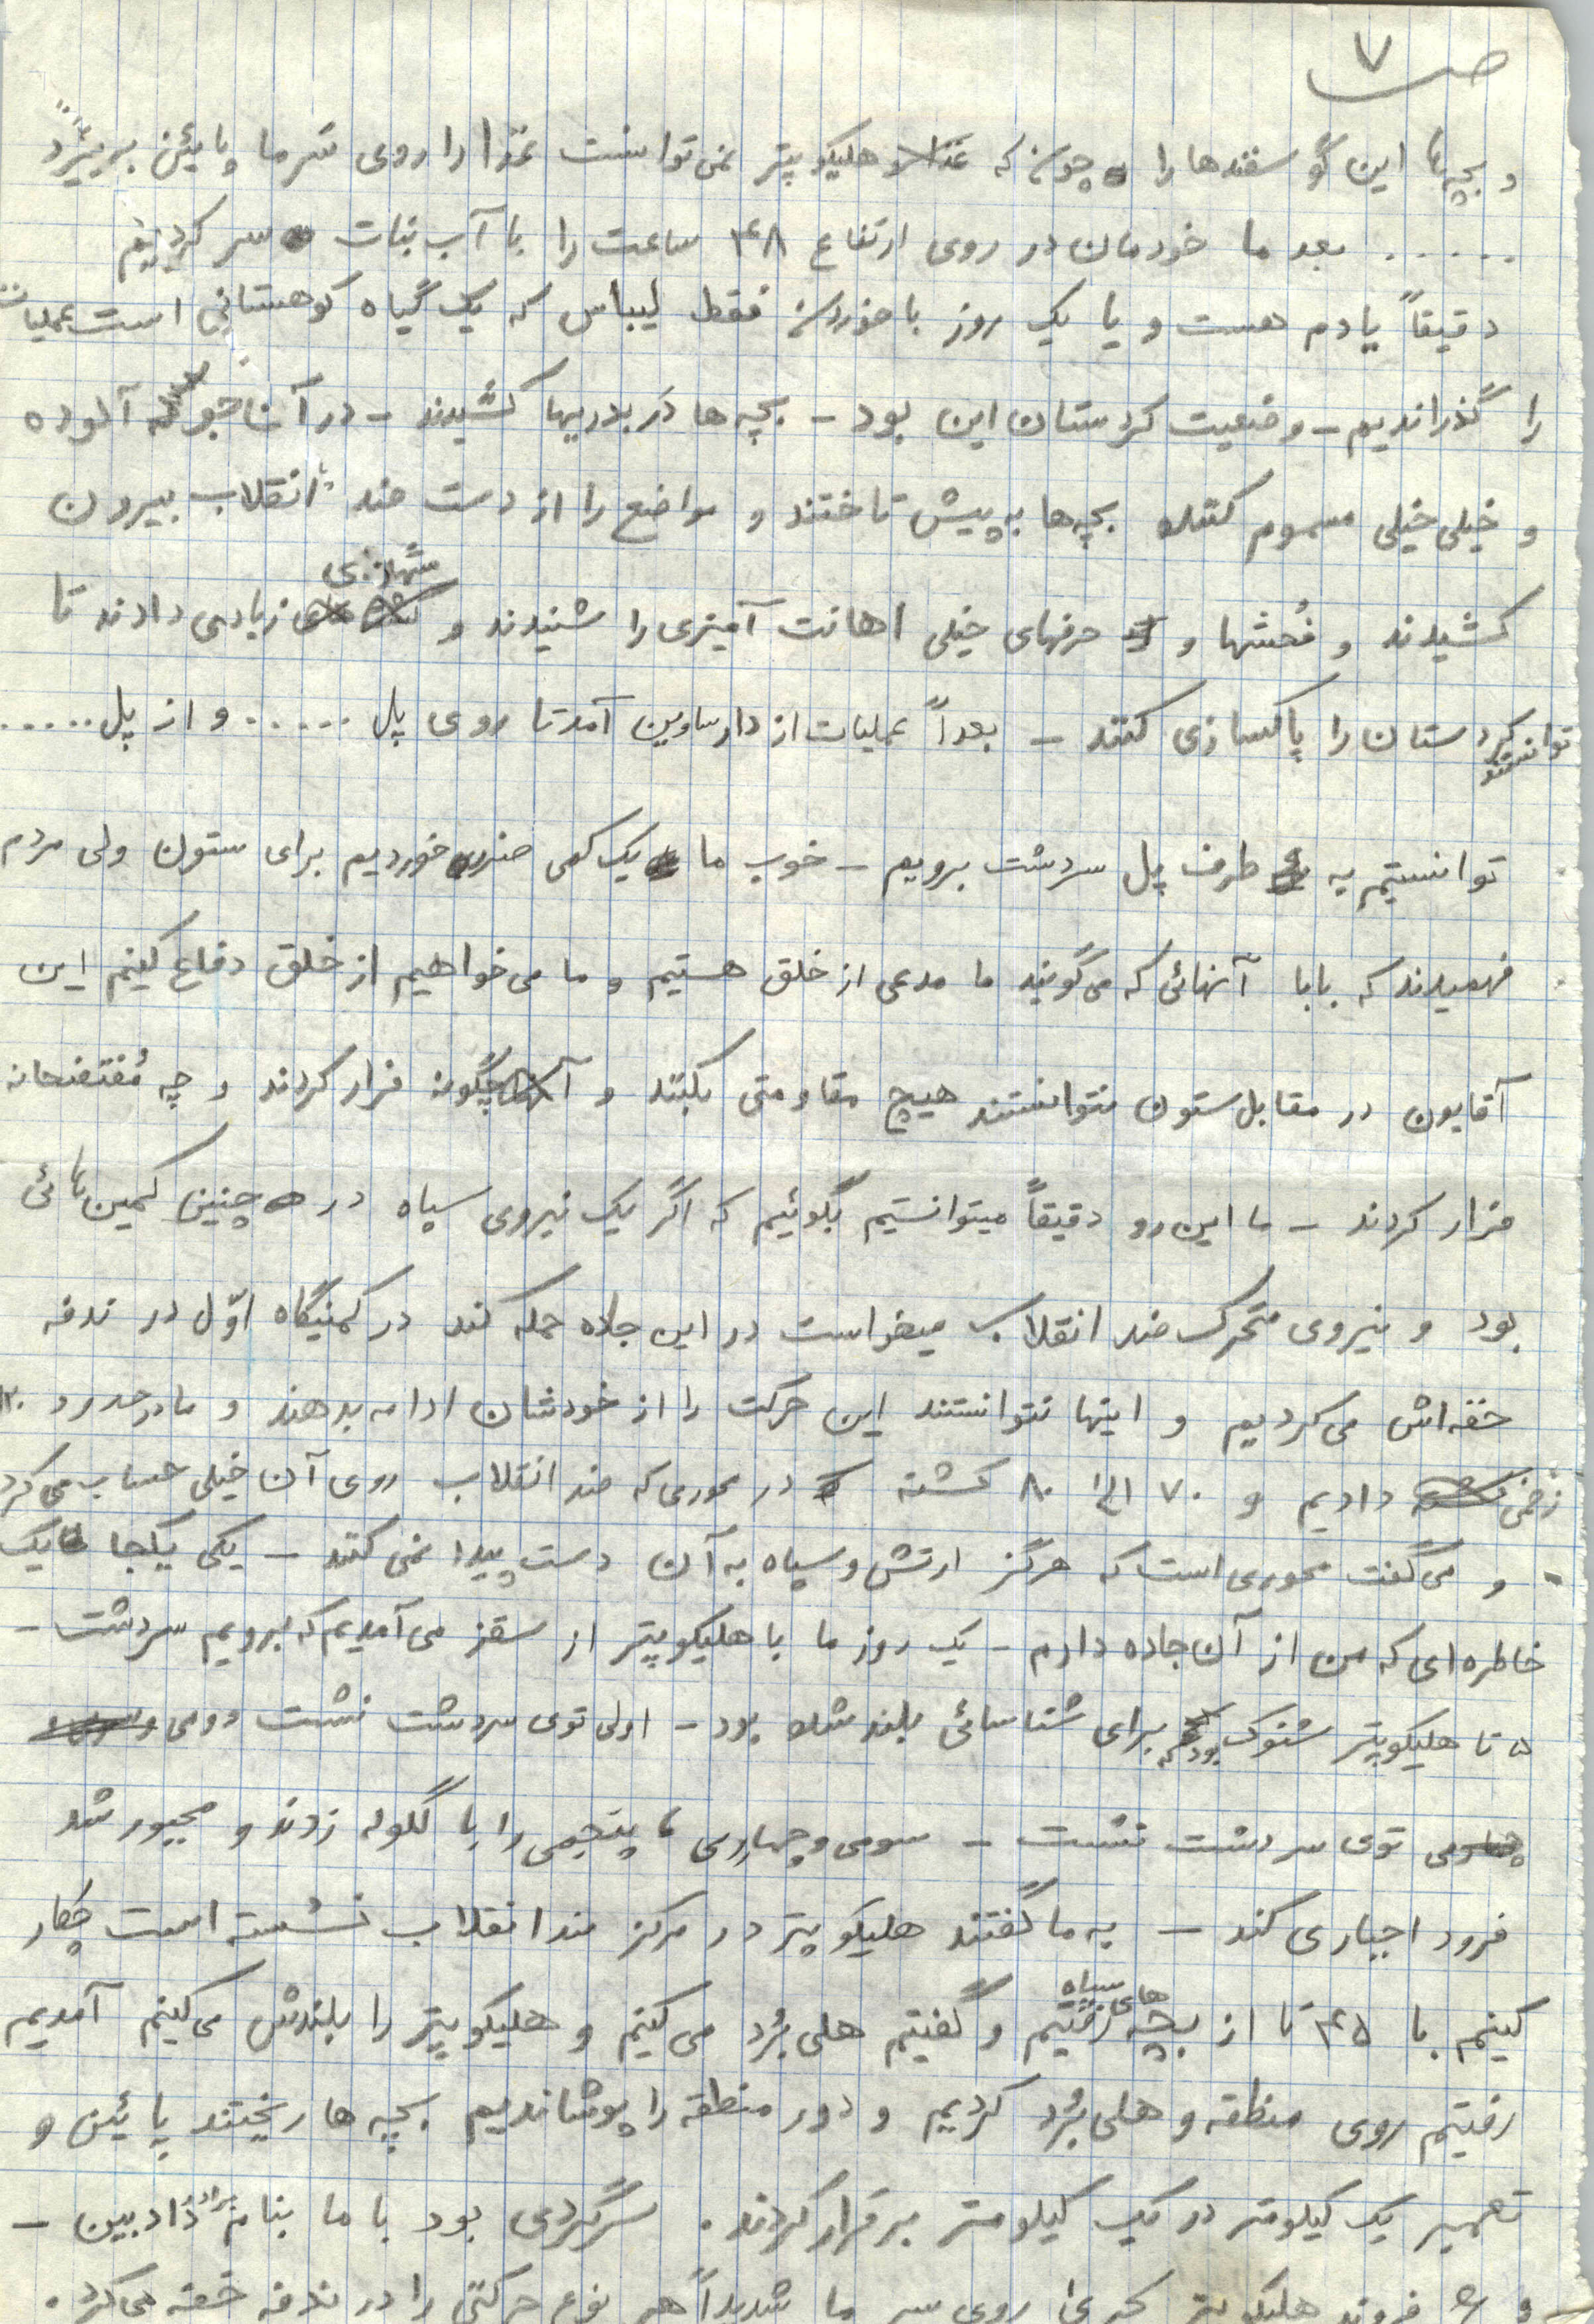 ص ۷
و بچه‌ها این گوسفندها را چونکه هلیکوپتر نمی‌توانست غذا را روی سرما و پائین بریزد
..... بعد ما خودمان در روی ارتفاع ۴۸ ساعت را با آب نبات سر کردیم
دقیقاً یادم هست و یا یک روز با خوردن فقط لیباس که یک گیاه کوهستانی است عملیات
را گذراندیم - وضعیت کردستان این بود - بچه‌ها دَربدریها کشیدند - در آن جو آلوده
و خیلی خیلی مسموم کننده بچه‌ها به پیش تاختند و مواضع را از دست ضد انقلاب بیرون
کشیدند و فُحشها و حرفهای خیلی اهانت آمیزی را شنیدند و شهدای زیادی دادند تا
توانستند کردستان را پاکسازی کنند - بعداً عملیات از دارساوین آمد تا روی پل ...... و از پل .....
توانستیم به طرف پل سردشت برویم - خوب ما یک کمی ضربه خوردیم برای ستون ولی مردم
فهمیدند که بابا آنهائی که می‌گویند ما مدعی از خلق هستیم و ما می‌خواهیم از خلق دفاع کنیم این
آقایون در مقابل ستون نتوانستند هیچ مقاومتی بکنند و چگونه فرار کردند و چه مُفتضحانه
فرار کردند - ما این رو دقیقاً میتوانستیم بگوئیم که اگر یک نیروی سپاه در چنین کمین‌هائی
بود و نیروی متحرک ضد انقلاب میخواست در این جاده حمله کند در کمینگاه اوّل در نطفه
خفه‌اش می‌کردیم و اینها نتوانستند این حرکت را از خودشان ادامه بدهند و ما در حدود ۱۲۰
زخمی دادیم و ۷۰ الی ۸۰ کشته در محوری که ضد انقلاب روی آن خیلی حساب می‌کرد
- و می‌گفت محوری است که هرگز ارتش و سپاه به آن دست پیدا نمی‌کنند - یکی یکجا یک
خاطره‌ای که من از آن جاده دارم - یک روز ما با هلیکوپتر از سقز می‌آمدیم که برویم سردشت -
۵ تا هلیکوپتر شنوک بود که برای شناسائی بلند شده بود - اولی توی سردشت نشست دومی
توی سردشت نشست - سومی و چهارمی، پنجمی را با گلوله زدند و مجبور شد
فرود اجباری کند - به ما گفتند هلیکوپتر در مرکز ضد انقلاب نشسته است چکار
کنیم با ۴۵ تا از بچه‌های سپاه رفتیم و گفتیم هلی بُرد می‌کنیم و هلیکوپتر را بلندش می‌کنیم آمدیم
رفتیم روی منطقه و هلی بُرد کردیم و دور منطقه را پوشاندیم بچه‌ها ریختند پائین و
یک کیلومتر در یک کیلومتر برقرار کردند. سرگردی بود با ما بنام برادر -
هلیکوپتر روی سر ما شدیداً هر نوع حرکتی را در نطفه خفه می‌کرد.